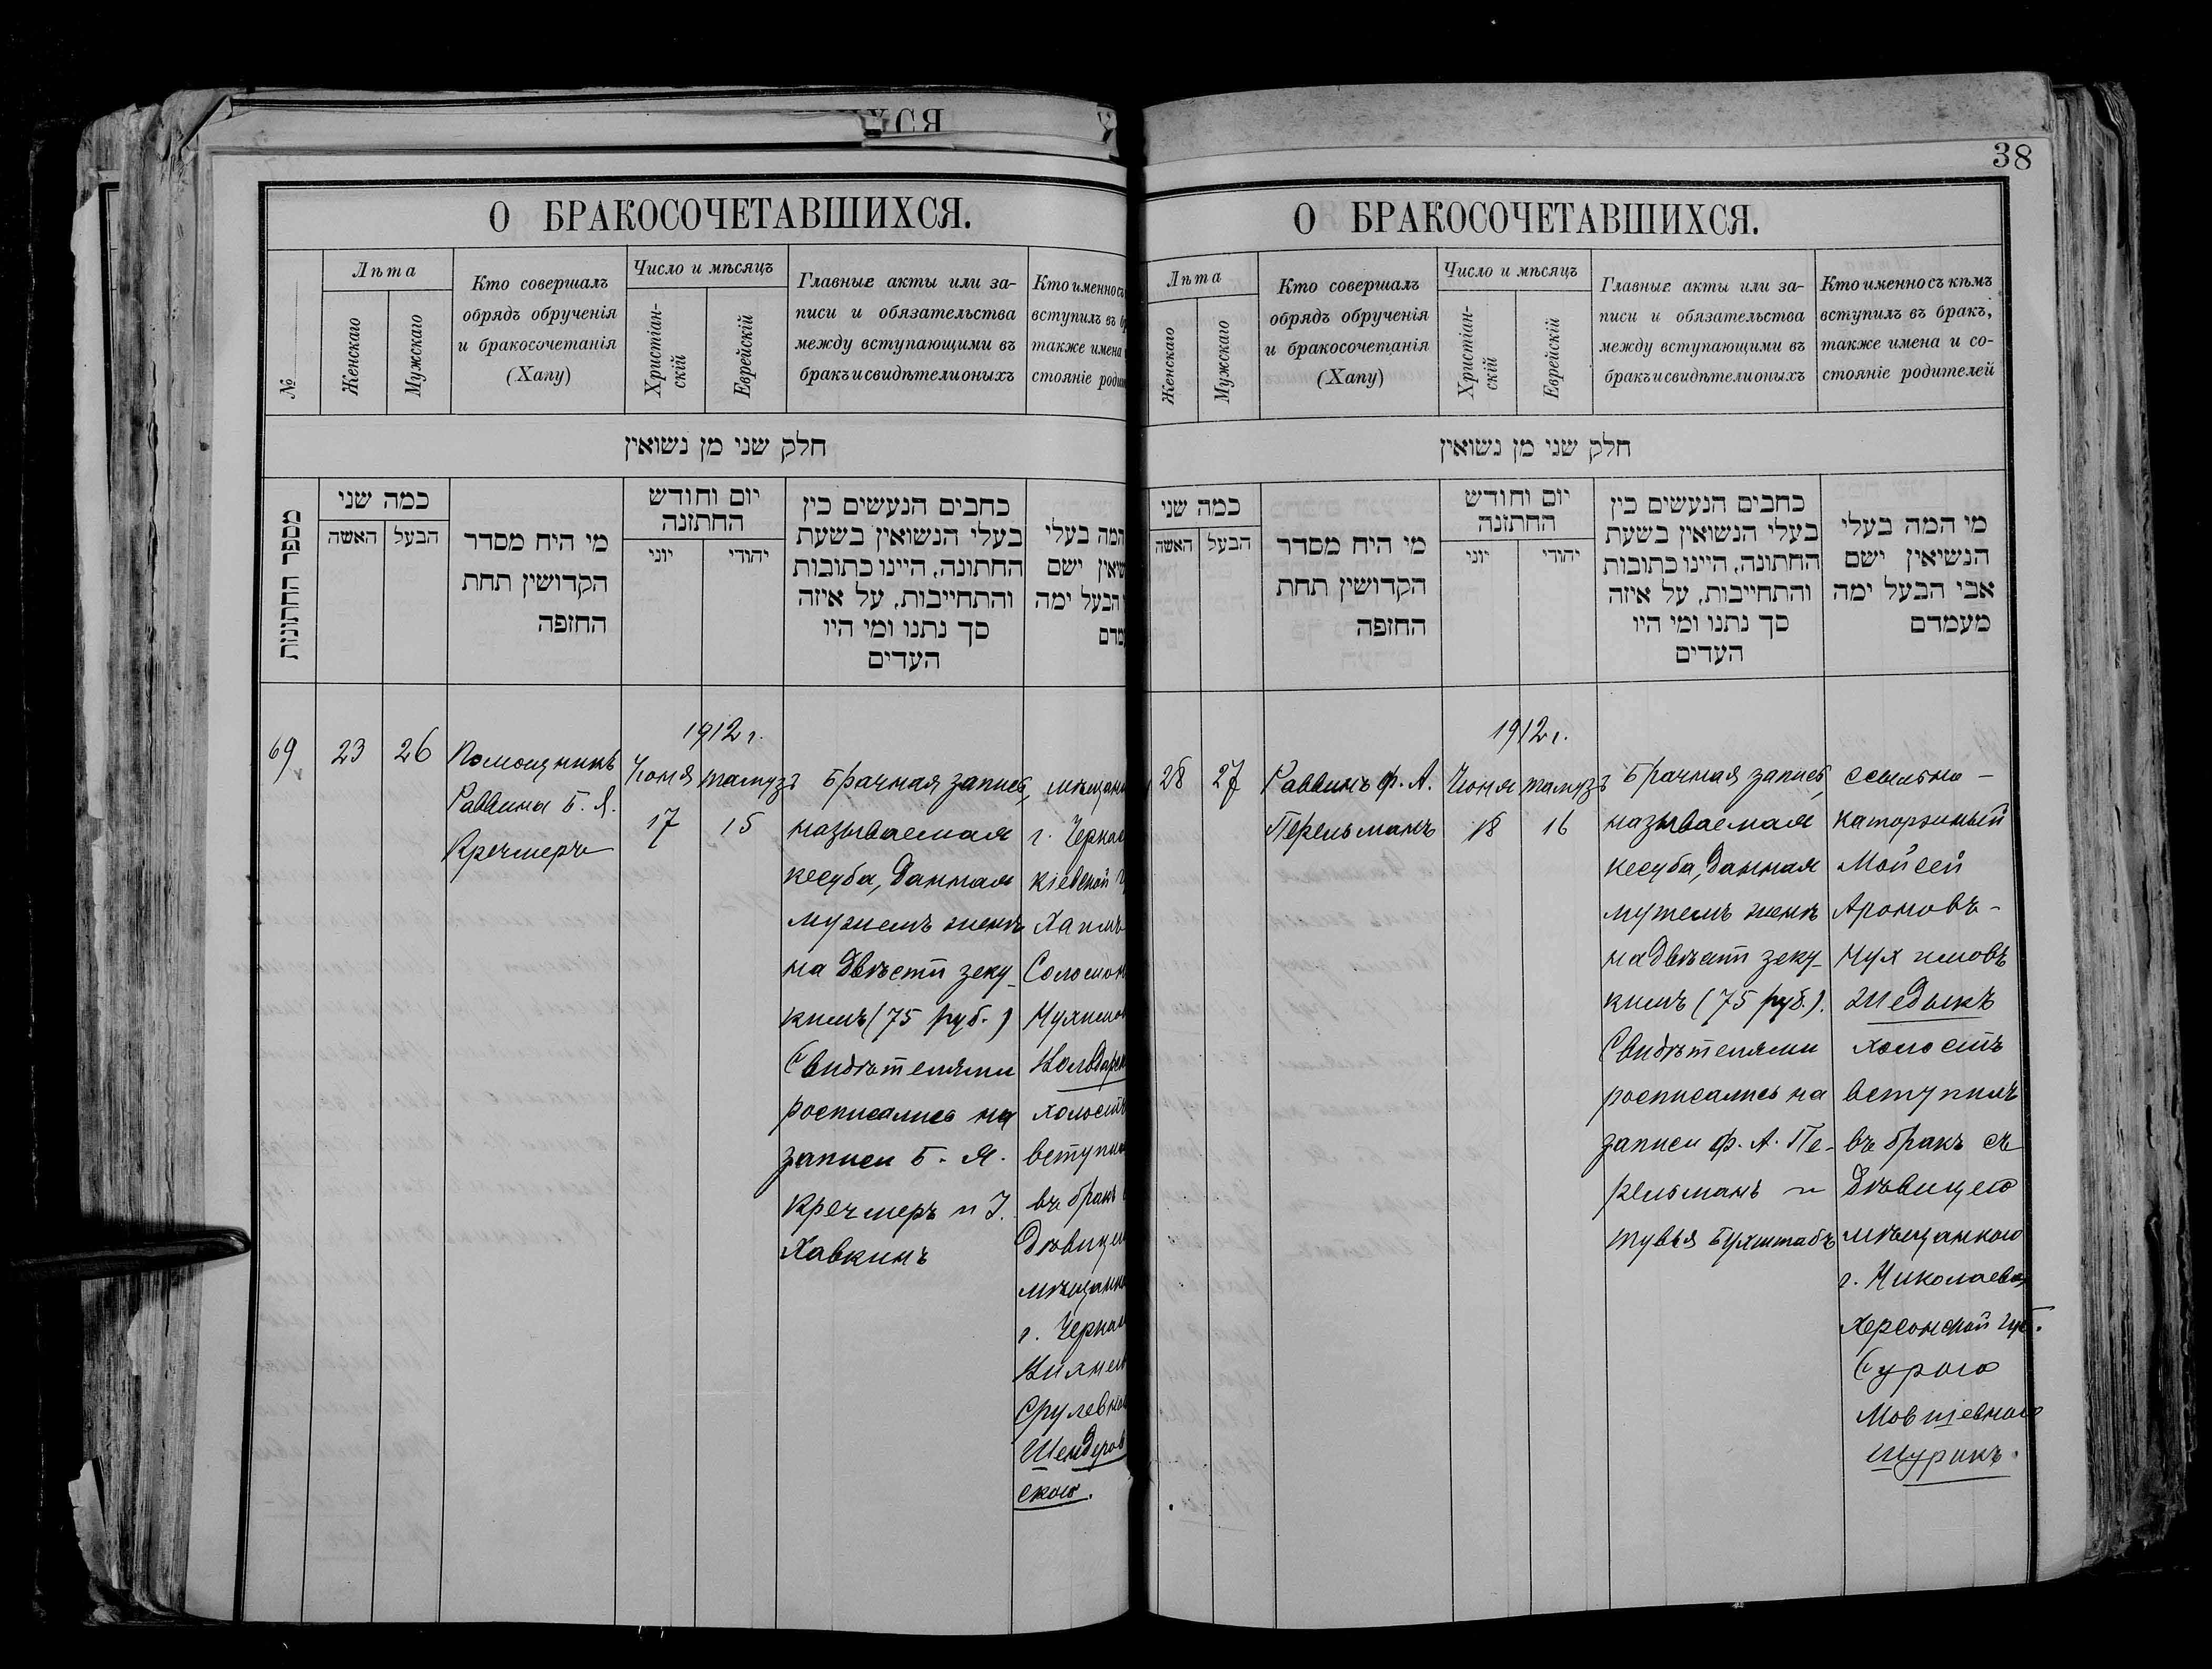 ХСЯ
О БРАКОСОЧЕТАВШИХСЯ.
№
Лѣта
Женскаго
Мужскаго
Кто совершалъ
обрядъ обрученія
и бракосочетанія
(Хапу)
Число и мѣсяцъ
Христіан-
скій
Еврейскій
Главные акты или за-
писи и обязательства
между вступающими въ
бракъ и свидѣтели оныхъ
Кто именно съ
вступилъ въ
также имена
стояніе
חלק שני מן נשואין
מספר החתונות
כמה שני
האשה
הבעל
מי היח מסדר
הקדושין תחת
החופה
יום וחודש
החתונה
יוני
יהודי
כחבים הנעשים כין
בעלי הנשואין בשעת
החתונה, היינו כתובות
והתחייבות, על איזה
סך נתנו ומי היו
העדים
המה בעלי
ישם
הבעל ימה
69
23
26
Помощникъ
Раввина Б. Я.
Кречмеръ
1912 г.
Іюня
17
тамузъ
15
Брачная запись,
называемая
кесуба, данная
мужемъ женѣ
на двѣсти зеку-
кимъ (75 руб.)
Свидѣтелями
росписались на
записи Б. Я.
Кречмеръ и І.
Хавкинъ
г.
кіевской
Хаимъ
въ бракъ
г.
Шендеров
скою.
38
О БРАКОСОЧЕТАВШИХСЯ.
Лѣта
Женскаго
Мужскаго
Кто совершалъ
обрядъ обрученія
и бракосочетанія
(Хапу)
Число и мѣсяцъ
Христіан-
скій
Еврейскій
Главные акты или за-
писи и обязательства
между вступающими въ
бракъ и свидѣтели оныхъ
Кто именно съ кѣмъ
вступилъ въ бракъ,
также имена и со-
стояніе родителей
חלק שני מן נשואין
כמה שני
האשה
הבעל
מי היח מסדר
הקדושין תחת
החופה
יום וחודש
החתונה
יוני
יהודי
כחבים הנעשים כין
בעלי הנשואין בשעת
החתונה, היינו כתובות
והתחייבות, על איזה
סך נתנו ומי היו
העדים
מי המה בעלי
הנשיאין ישם
אבי הבעל ימה
מעמדם
28
27
Раввинъ Ф. А.
Перельманъ
1912 г.
Іюня
18
тамузъ
16
Брачная запись,
называемая
кесуба, данная
мужемъ женѣ
на двѣсти зеку-
кимъ (75 руб.).
Свидѣтелями
росписались на
записи Ф. А. Пе-
рельманъ и
Тувья Бухштабъ
ссыльно-
каторжный
Мойсей
Ароновъ-
Нухимовъ
Шедыкъ
холостъ
вступилъ
въ бракъ съ
дѣвицею
мѣщанкою
г. Николаева,
Херсонской губ.
Сурою
Мовшевною
Щурикъ.